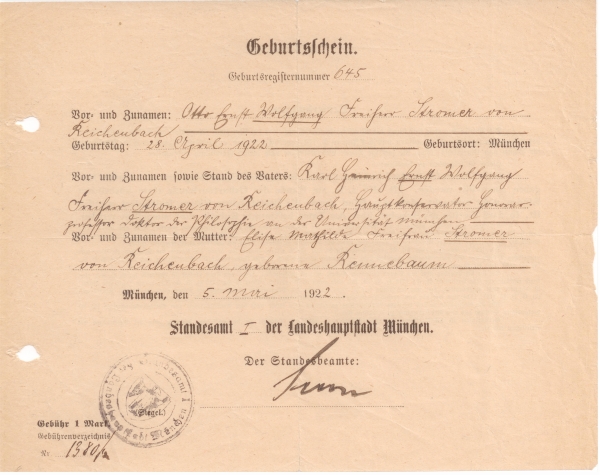 Geburtsschein.
Geburtsregisternummer 645
Vor- und Zunamen: Otto Ernst Wolfgang Freiherr Stromer von
Reichenbach
Geburtstag: 28. April 1922 Geburtsort: München
Vor- und Zunamen sowie Stand des Vaters: Karl Heinrich Ernst Wolfgang
Freiherr Stromer von Reichenbach, Hauptkonservator Honorar-
professor Doktor der Philosophie an der Universität München
Vor- und Zunamen der Mutter: Elise Mathilde Freifrau Stromer
von Reichenbach, geborene Rennebaum
München, den 5. Mai 1922.
Standesamt I der Landeshauptstadt München.
Der Standesbeamte:
(Siegel.)
Gebühr 1 Mark.
Gebührenverzeichnis
Nr.